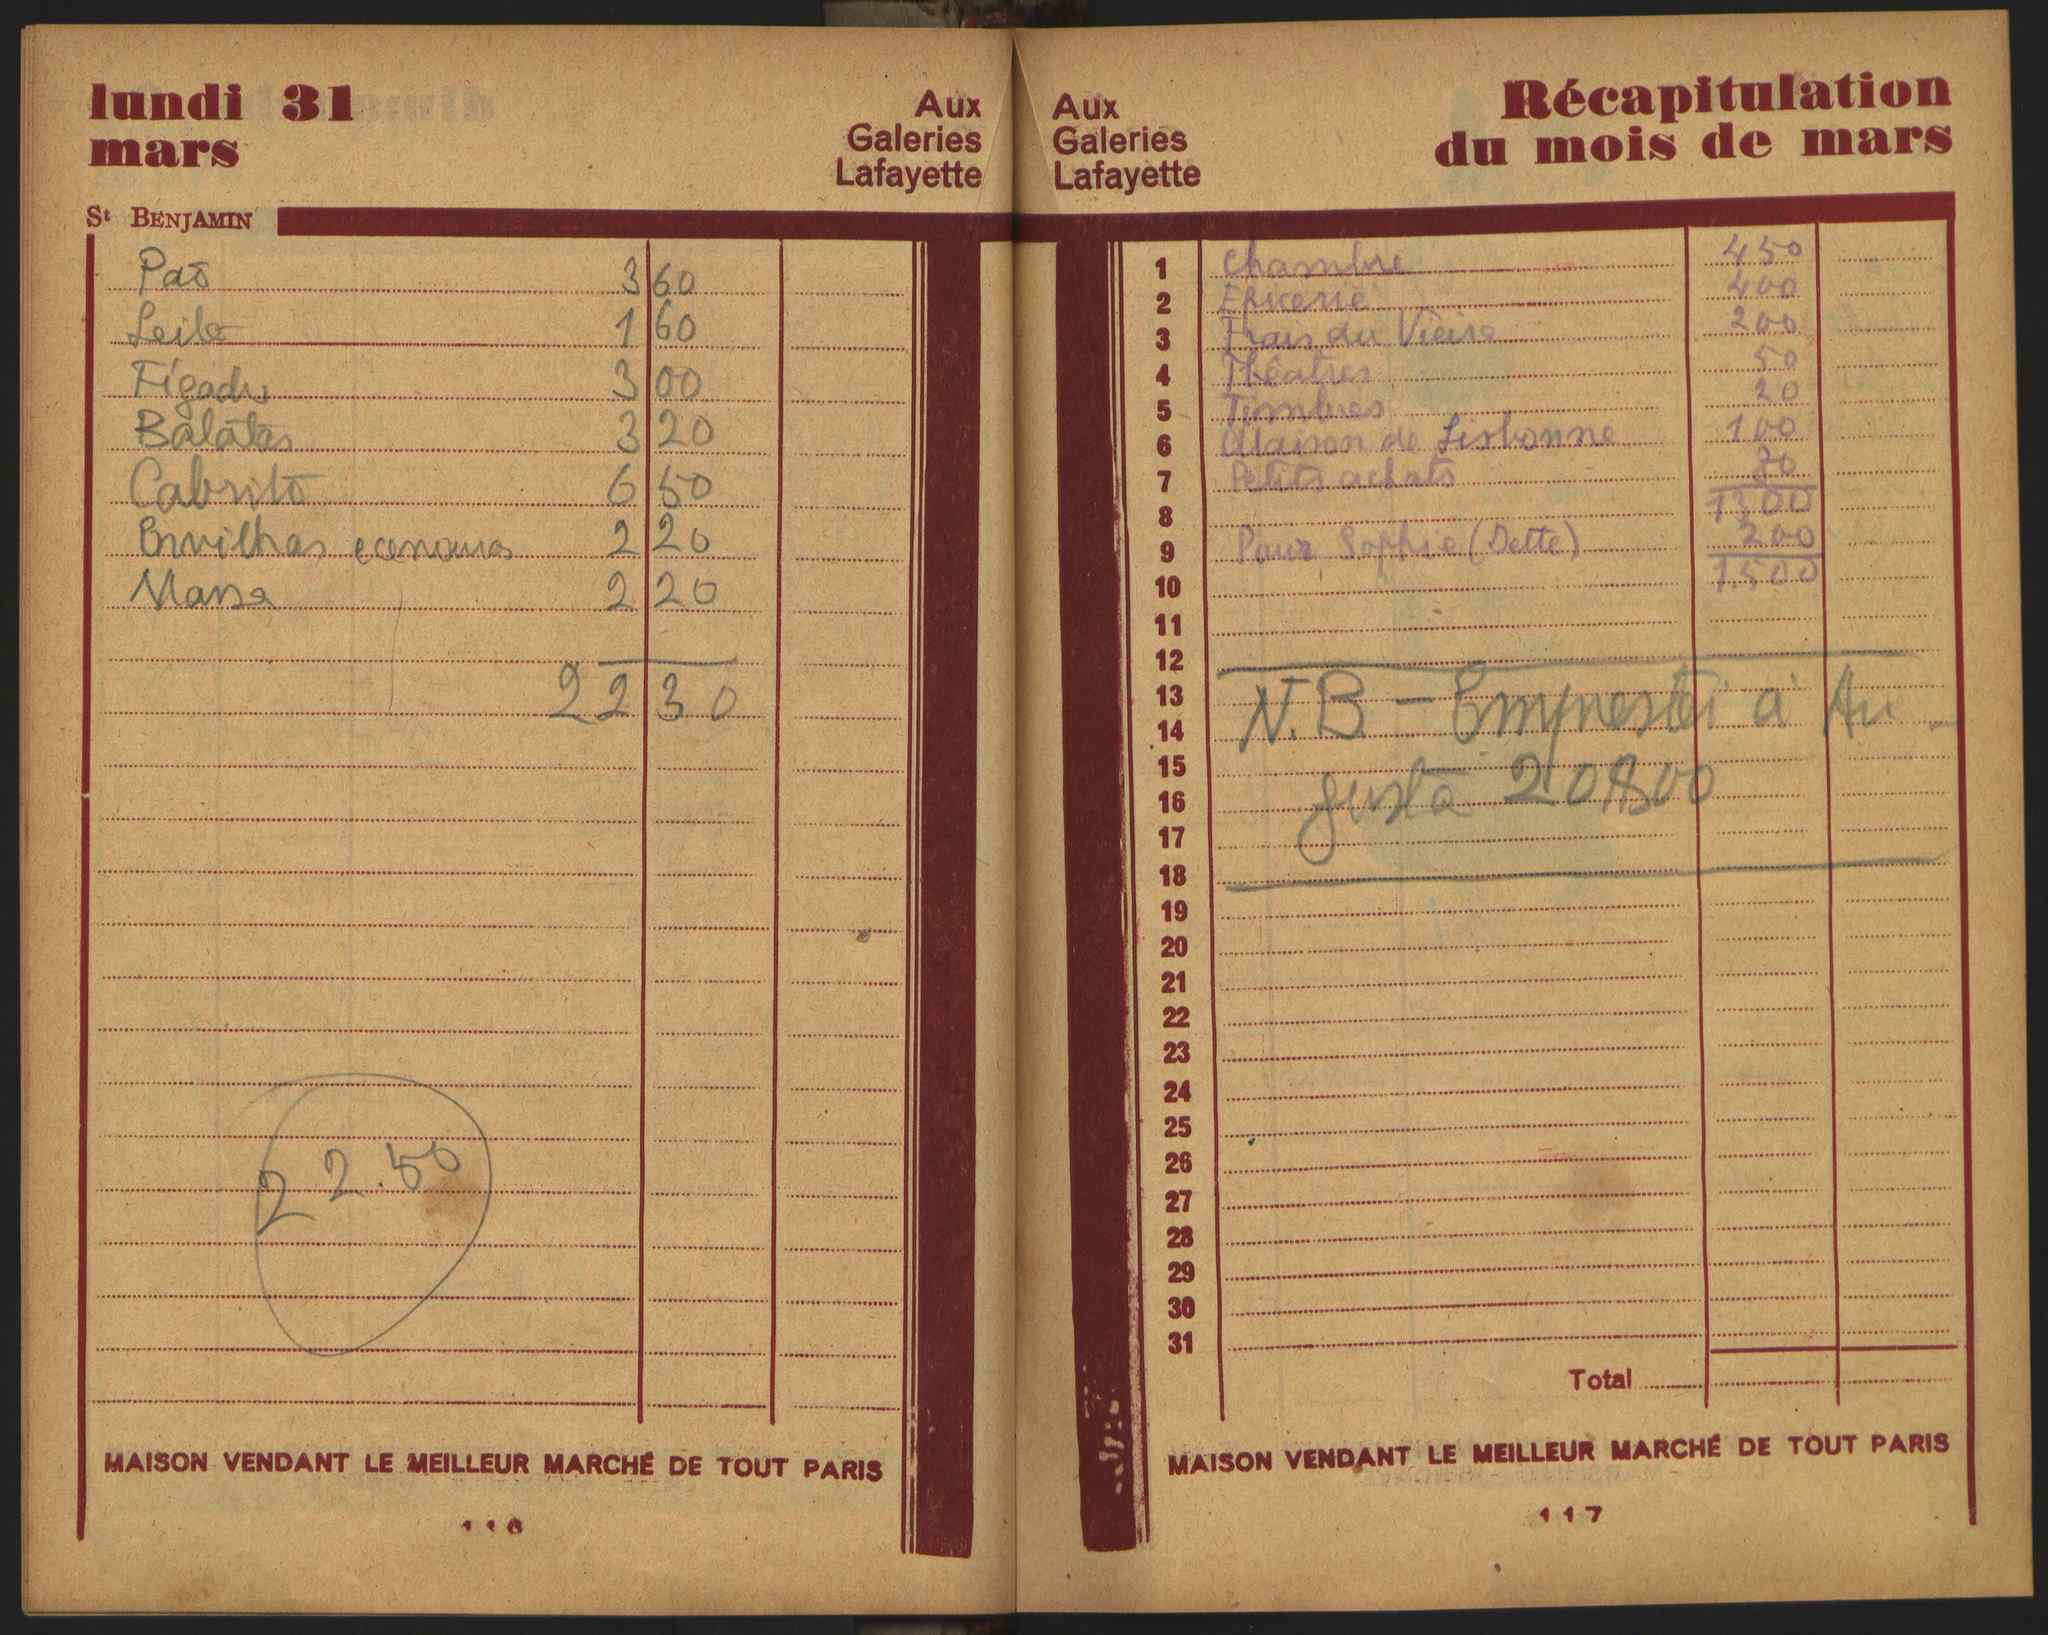 lundi 31
mars
Aux
Galeries
Lafayette
St BENJAMIN
Paō 3 60
Leite 1 60
Fígado 3 00
Batatas 3 20
Cabrito 6 50
Ervilhas 2 20
Massa 2 20
22 30
22.50
MAISON VENDANT LE MEILLEUR MARCHÉ DE TOUT PARIS
116
Aux
Galeries
Lafayette
Récapitulation
du mois de mars
1 Chambre 450
2 Epicerie 400
3 Frais du Vieira 200
4 Théatres 50
5 Timbres 20
6 Maison de Lisbonne 100
7 Petits achats
8 1300
9 Pour Sophie (Dette) 200
10 1500
11
12
13 N.B. - Emprestei à Au-
14
15 gusta 20$00
16
17
18
19
20
21
22
23
24
25
26
27
28
29
30
31
Total
MAISON VENDANT LE MEILLEUR MARCHÉ DE TOUT PARIS
117